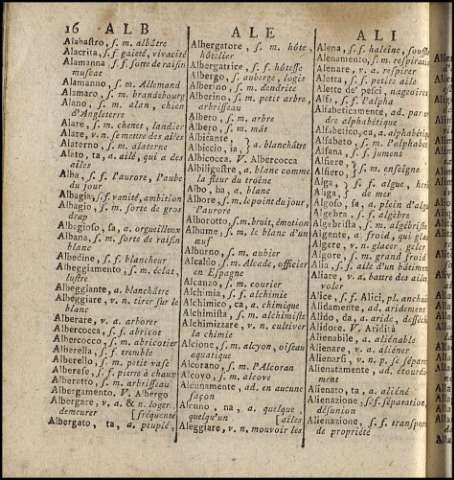 16 ALB ALE ALI
Alabastro, s. m. albâtre
Alacrità, s. f. gaieté, vivacité
Alamanna, s. f. sorte de raisin
muscat
Alamanno, s. m. Allemand
Alamaro, s. m. brandebourg
Alano, s. m. alan, chien
d'Angleterre
Alare, s. m. chenet, landier
Alare, v. n. se mettre des ailes
Alaterno, s. m. alaterne
Alato, ta, a. ailé, qui a des
ailes
Alba, s. f. l'aurore, l'aube
du jour
Albagia, s. f. vanité, ambition
Albagio, s. m. sorte de gros
drap
Albagioso, sa, a. orgueilleux
Albana, s. m. sorte de raisin
blanc
Albedine, s. f. blancheur
Albeggiamento, s. m. éclat,
lustre
Albeggiante, a. blanchâtre
Albeggiare, v. n. tirer sur le
blanc
Alberare, v. a. arborer
Albercocca, s. f. abricot
Albercocco, s. m. abricotier
Alberella, s. f. tremble
Alberello, s. m. petit vase
Alberese, s. f. pierre à chaux
Alberetto, s. m. arbrisseau
Albergamento, V. Albergo
Albergare, v. a. & n. loger,
demeurer [fréquenté
Albergato, ta, a. peuplé,
Albergatore, s. m. hôte,
hôtelier
Albergatrice, s. f. hôtesse
Albergo, s. auberge, logis
Alberino, s. m. dendrite
Alberino, s. m. petit arbre,
arbrisseau
Albero, s. m. arbre
Albero, s. m. mât
Albicante, } a. blanchâtre
Albiccio, ia,
Albicocca. V. Albercocca
Albiligustre, a. blanc comme
la fleur du troëne
Albo, ba, a. blanc
Albore, s. m. le point du jour,
l'aurore
Alborotto, s. m. bruit, émotion
Albume, s. m. le blanc d'un
œuf
Alburno, s. m. aubier
Alcaldo, s. m. Alcade, officier
en Espagne
Alcanzo, s. m. courier
Alchimia, s. f. alchimie
Alchimico, ca, a. chimique
Alchimista, s. m. alchimiste
Alchimizzare, v. n. cultiver
la chimie
Alcione, s. m. alcyon, oiseau
aquatique
Alcorano, s. m. l'Alcoran
Alcovo, s. m. alcove
Alcunamente, ad. en aucune
façon
Alcuno, na, a. quelque,
quelqu'un [ailes
Aleggiare, v. n. mouvoir les
Alena, s. f. haleine, souffle
Alenamento, s. m. respiration
Alenare, v. a. respirer
Aletta, s. f. petite aile
Alette de' pesci, nageoires
Alfa, s. f. l'alpha
Alfabeticamente, ad. par
dre alphabétique
Alfabetico, ca, a. alphabétique
Alfabeto, s. m. l'alphabet
Alfana, s. f. jument
Alfiere, } s. m. enseigne
Alfiero,
Alga, } s. f. algue, herbe
Aliga, de mer
Algoso, sa, a. plein d'algue
Algebra, s. f. algèbre
Algebrista, s. m. algébriste
Algente, a. froid, qui glace
Algere, v. n. glacer, geler
Algore, s. m. grand froid
Alia, s. f. aile d'un bâtiment
Aliare, v. a. battre des ailes,
voler
Alice, s. f. Alici, pl. anchois
Alidamente, ad. aridement
Alido, da, a. aride, desséché
Alidore. V. Aridità
Alienabile, a. aliénable
Alienare, v. a. aliéner
Alienarsi, v. n. p. se séparer
Alienatamente, ad. étourdi-
ment
Alienato, ta, a. aliéné
Alienazione, s. f. séparation,
désunion
Alienazione, s. f. transport
de propriété